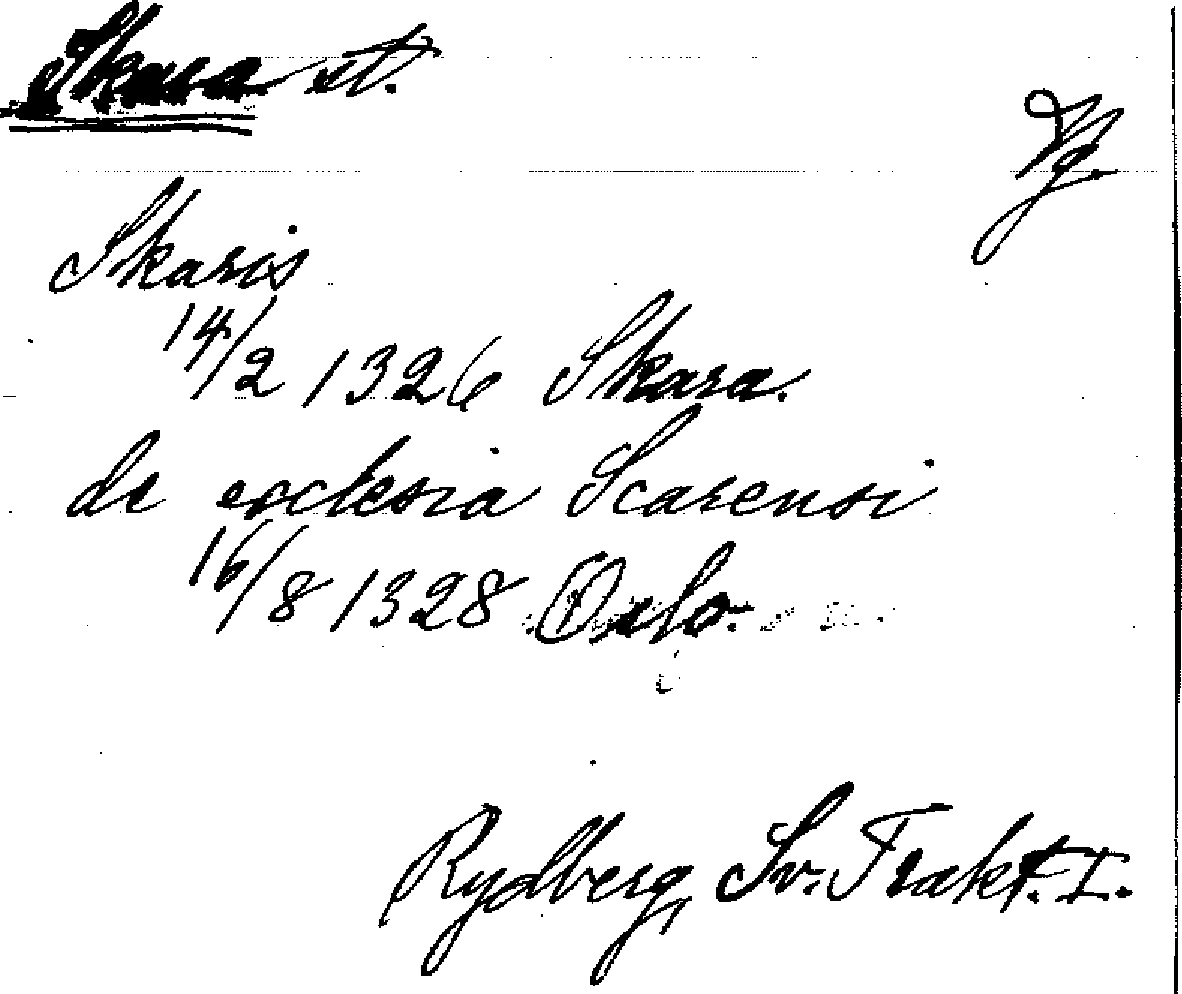 Skara st.
Vg.
Skaris
14/2 1326 Skara.
de ecclesia Scarensi
16/8 1328 Oslo.
Rydberg, Sv. Trakt. I.